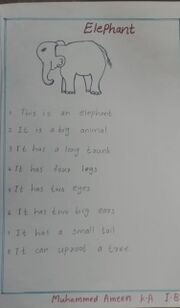 Elephant
1 This is an elephant
2 It is a big animal
3 It has a long trunk
4 It has four legs
5 It has two eyes
6 It has two big ears
7 It has a small tail
8 It can uproot a tree
Muhammed Ameen K.A I-B